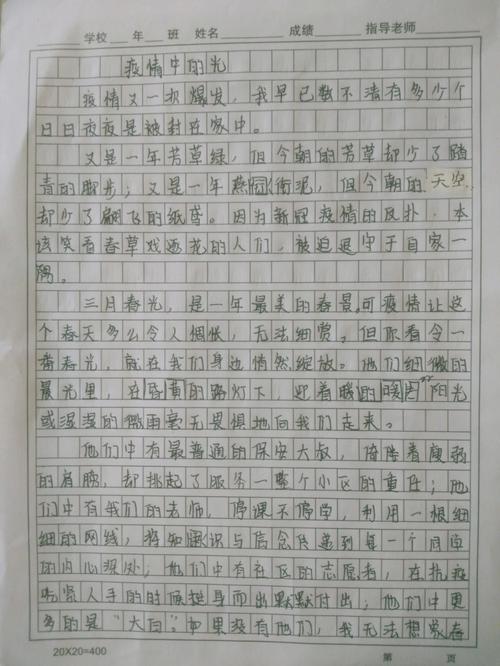 学校 年 班 姓名 成绩 指导老师
疫情中的光
疫情又一次爆发，我早已数不清有多少个
日日夜夜是被封在家中。
又是一年芳草绿，但今朝的芳草却少了踏
青的脚步；又是一年燕回衔泥，但今朝的天空
却少了翩飞的纸鸢。因为新冠疫情的反扑，本
该笑看春草戏逐花的人们，被迫退守于自家一
隅。
三月春光，是一年最美的春景，可疫情让这
个春天多么令人惆怅，无法细赏。但你看令一
番春光，就在我们身边悄然绽放。他们细微的
晨光里，在昏黄的路灯下，迎着暖的暖阳光
或湿湿的微雨毫无畏惧地向我们走来。
他们中有最普通的保安大叔，倚着瘦弱
的肩膀，却挑起了服务一整个小区的重任；他
们中有我们的老师，停课不停学，利用一根细
细的网线，将知识与信念传递到每一个同学
的内心深处；他们中有社区的志愿者，在抗疫
吃紧人手的时候挺身而出默默付出；他们中更
多的是“大白”如果没有他们，我无法想象春
20X20=400 第 页